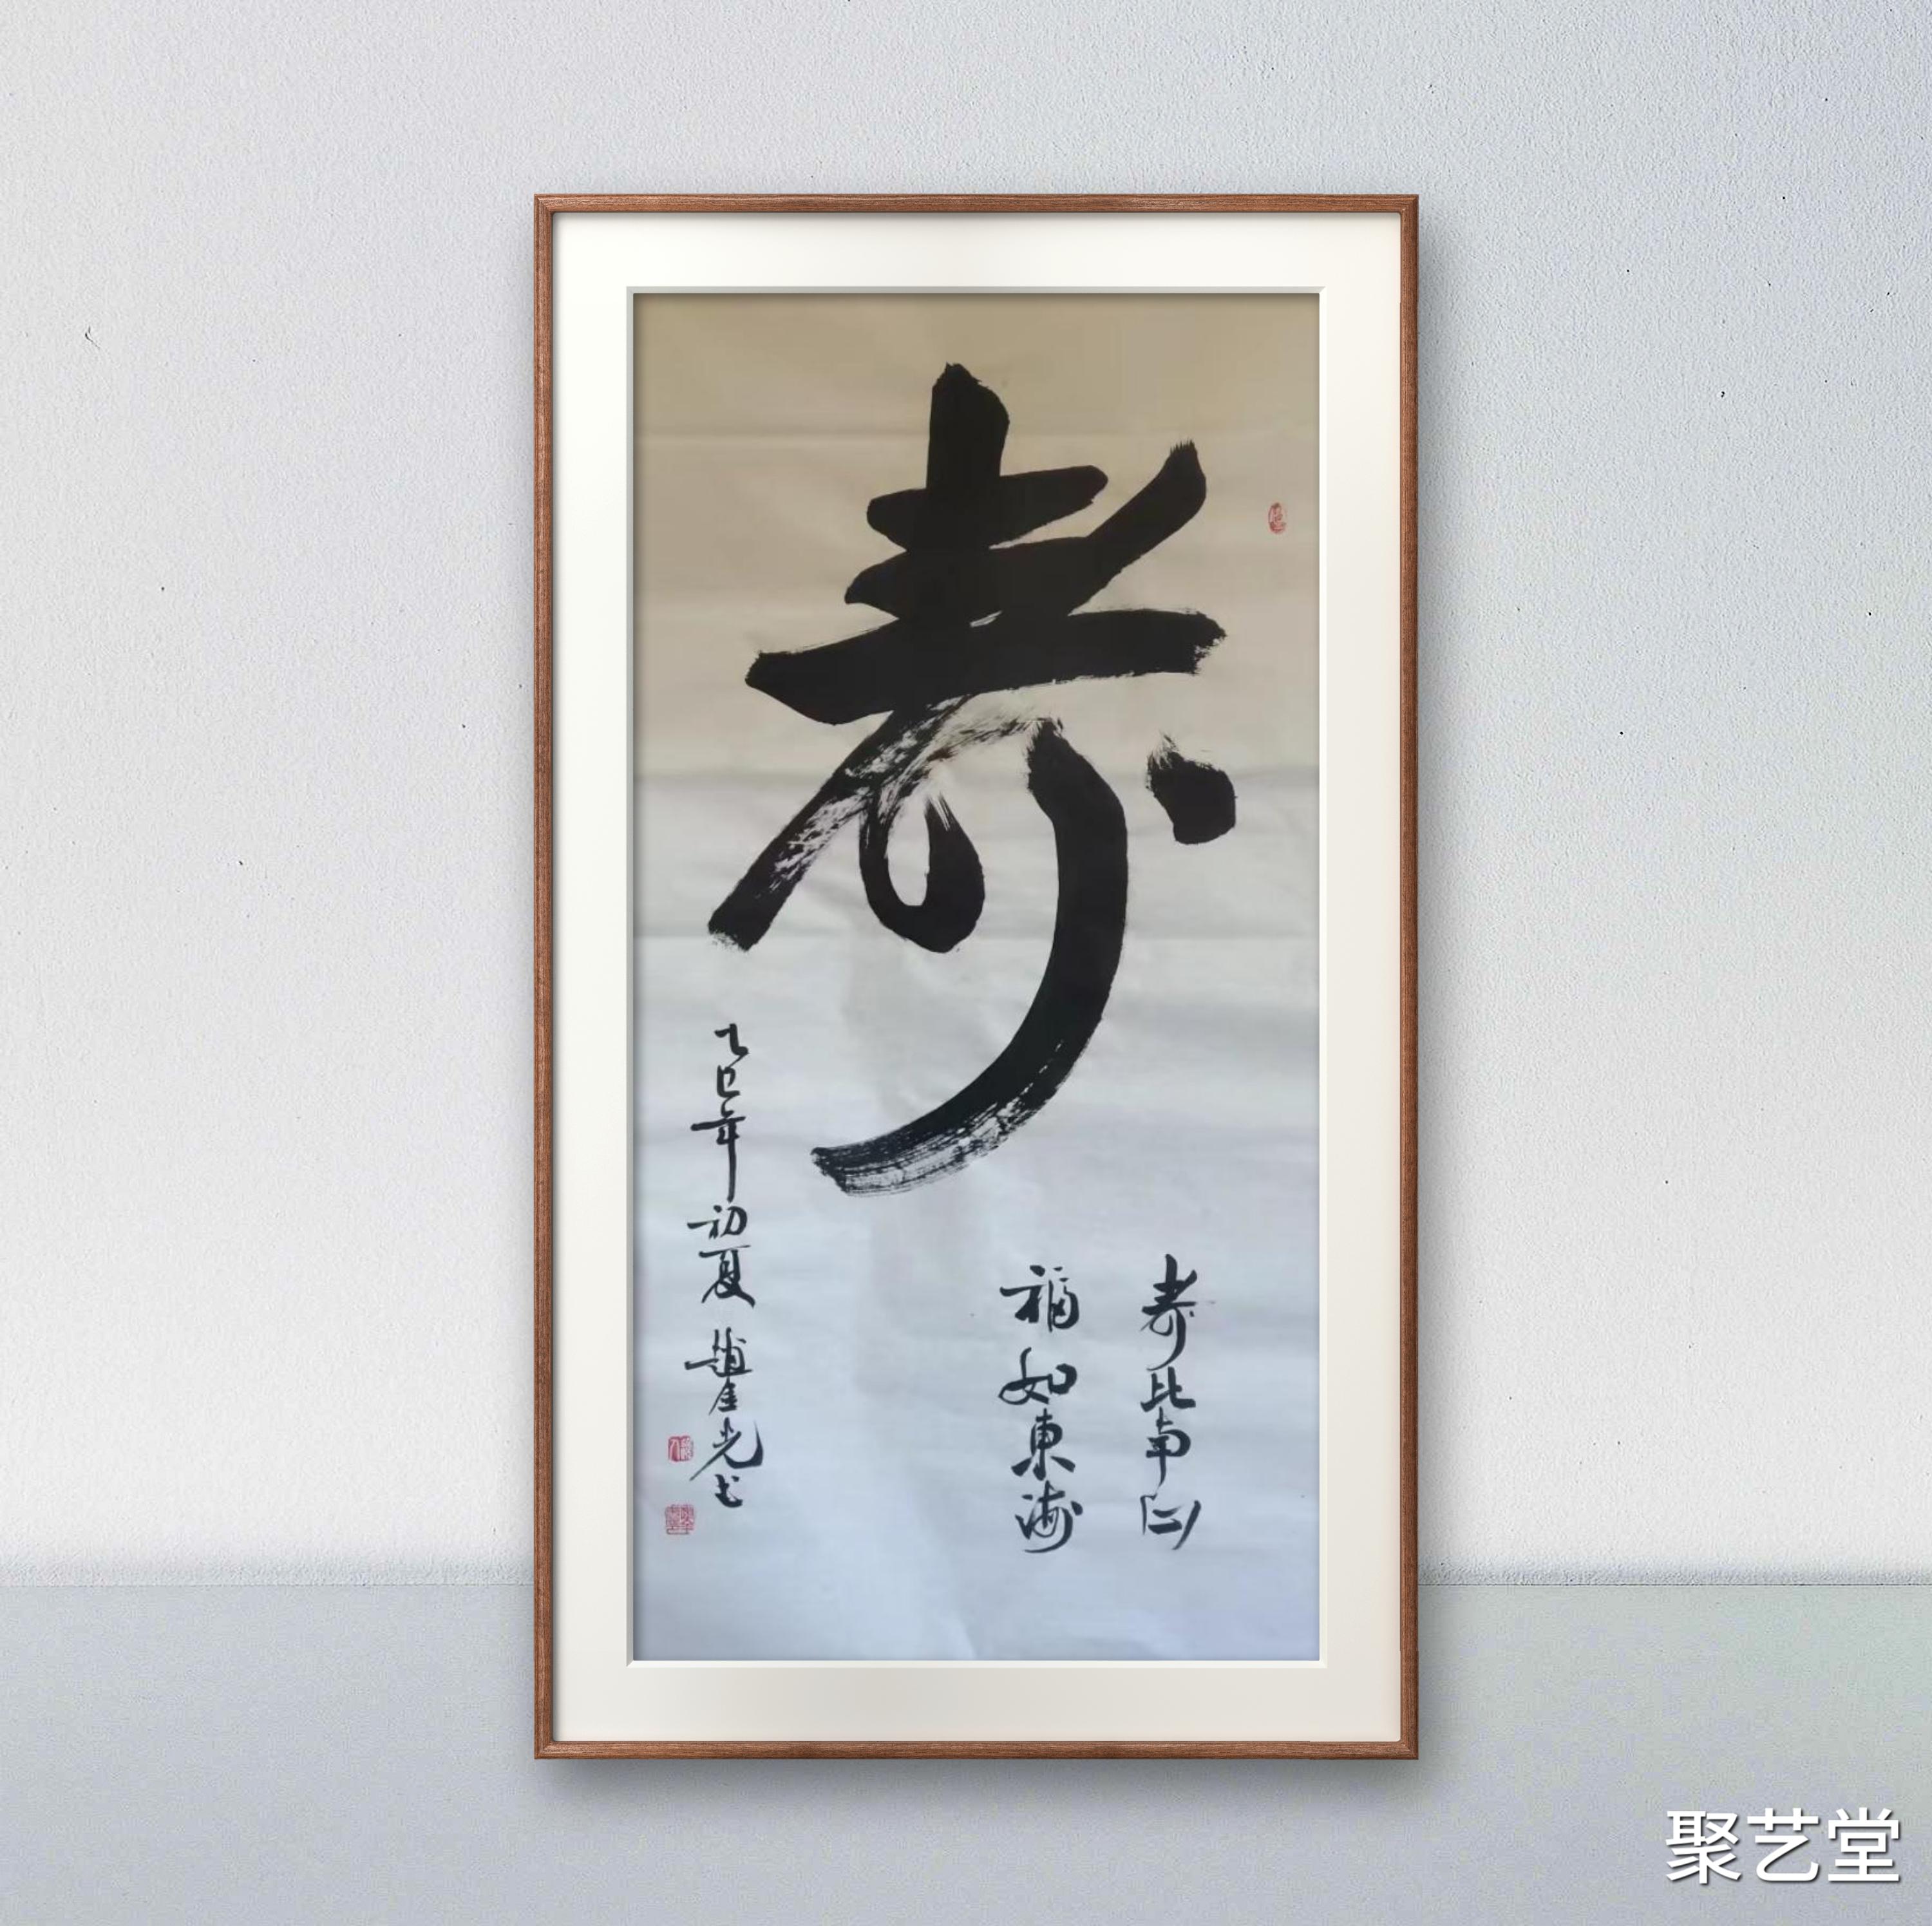 寿
寿比南山
福如東海
乙巳年初夏 趙光书
聚艺堂